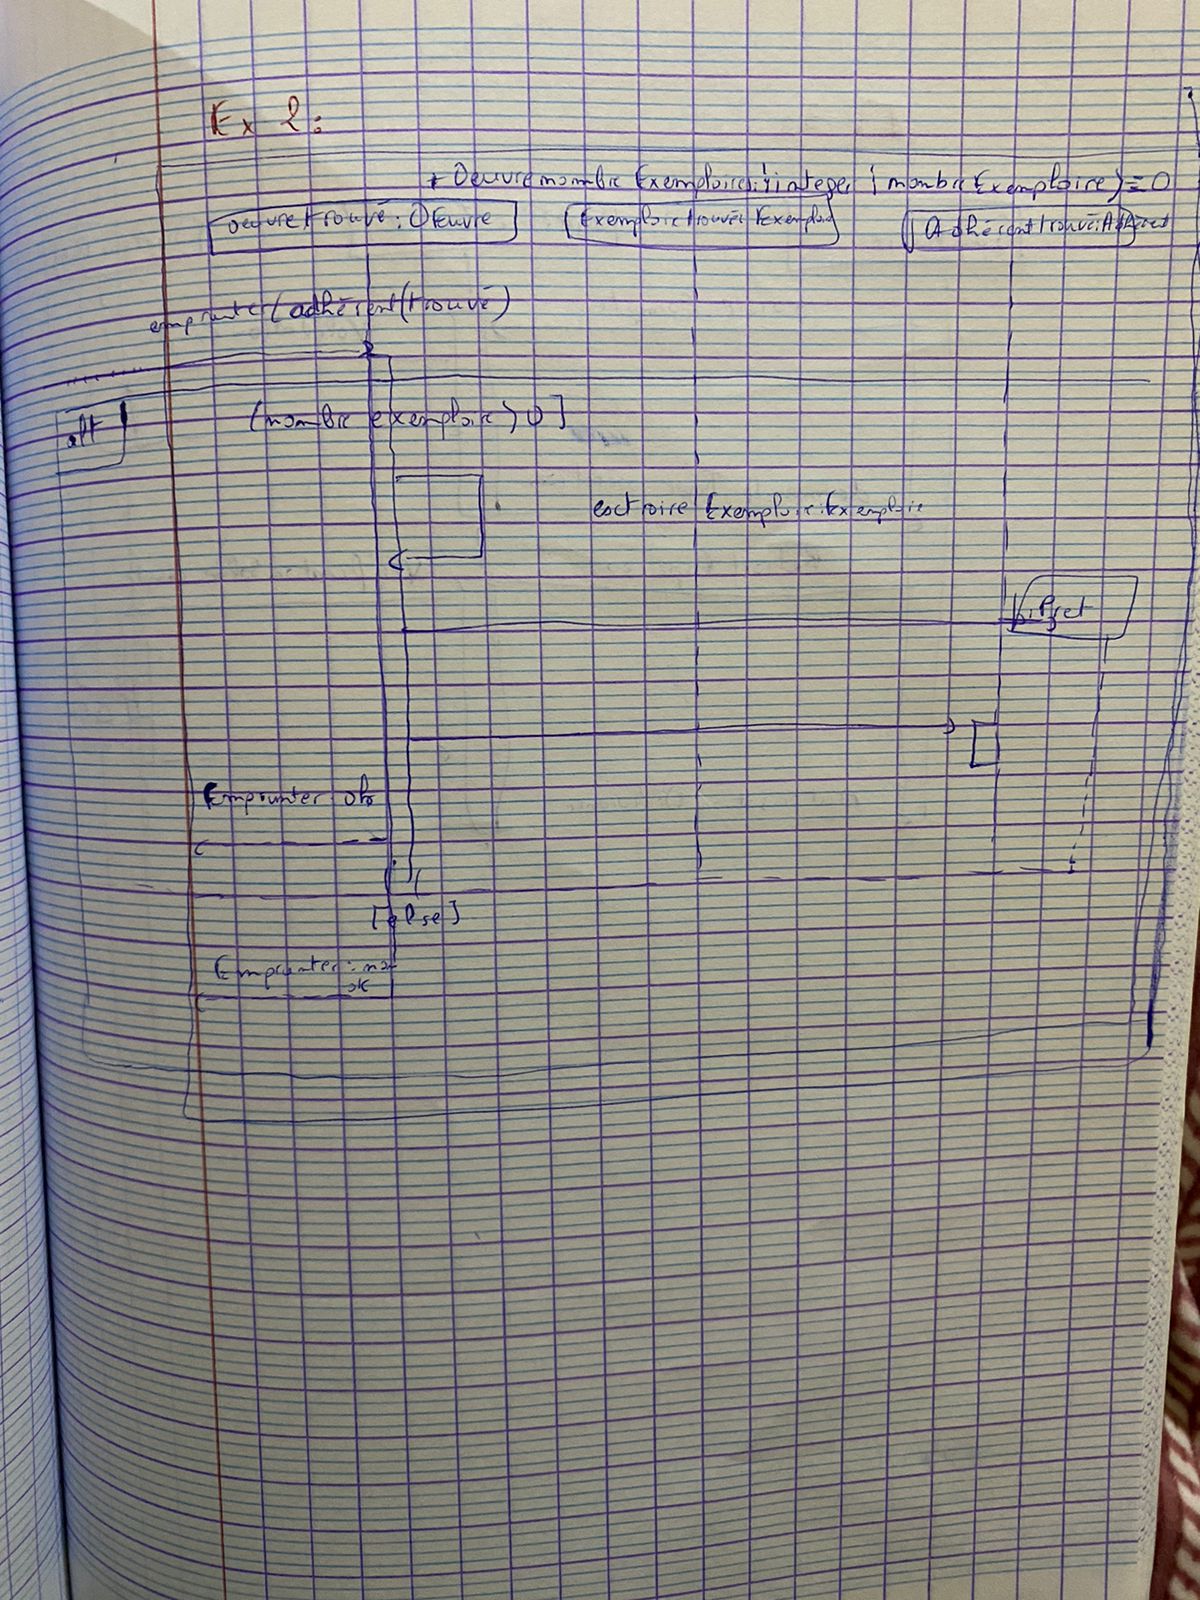 Ex 2:
+ Oeuvre nombre Exemplaire: integer { nombre Exemplaire) = 0
oeuvre trouvé: OEuvre
Exemplaire trouvé: Exemplai
Adhérent trouvé: Adhérent
emprunter (adhérent (trouvé)
alt
(nombre exemplaire > 0]
esctraire Exemplaire: Exemplaire
Emprunter ok
[else]
Emprunter: non
ok